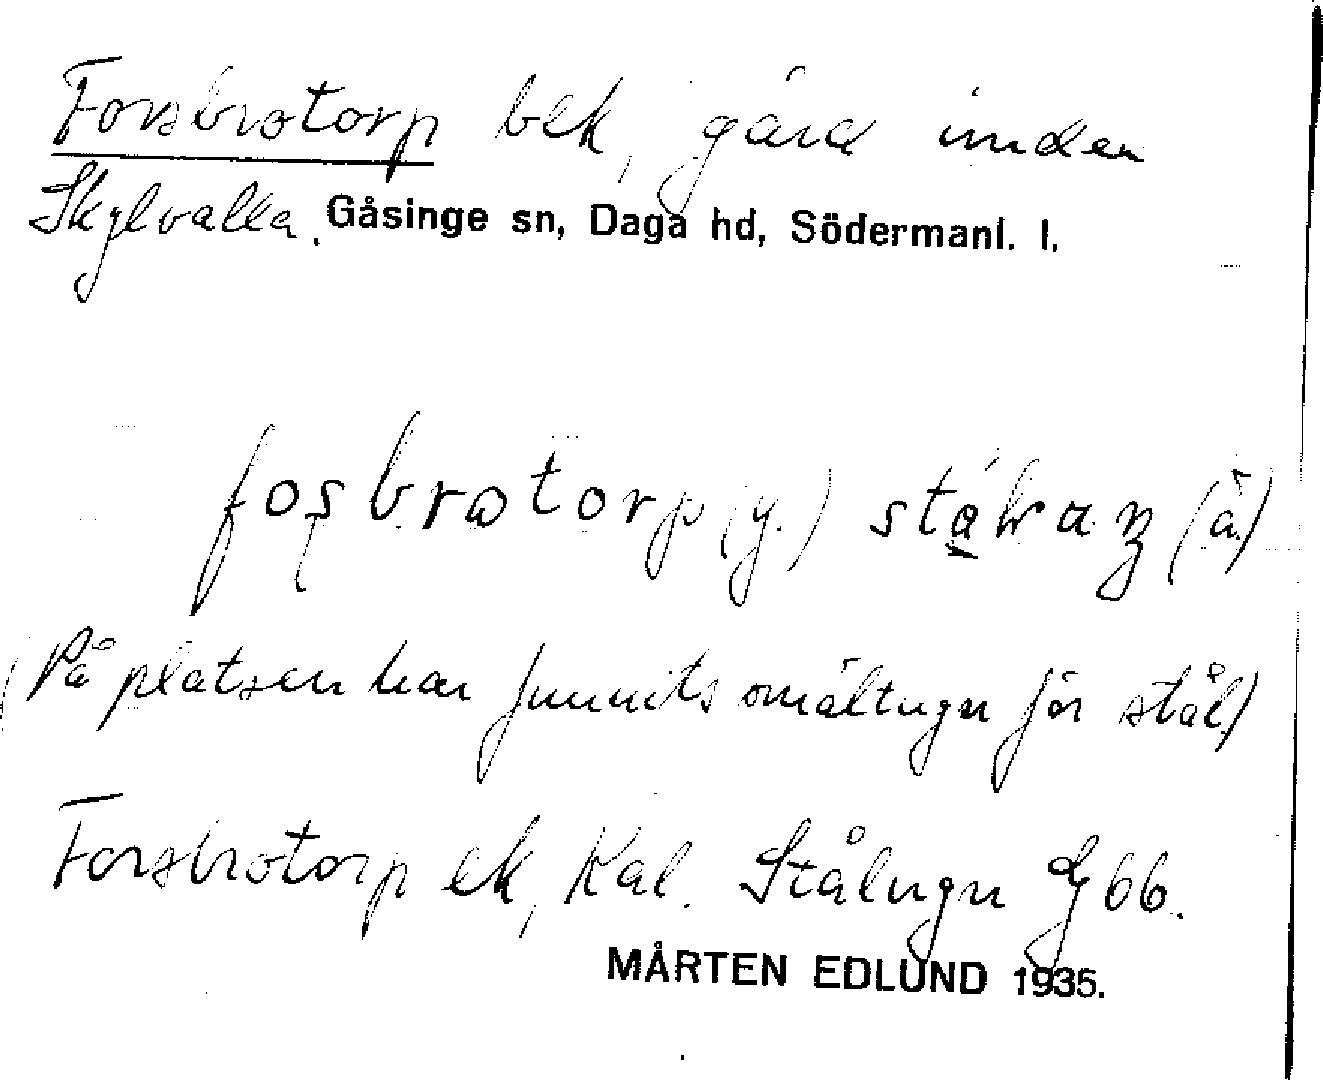 Forsbrotorp bek, gård under
Skylvalla. Gåsinge sn, Daga hd, Södermanl. l.
fosbrotorp (y.) (ä)
(På platsen har funnits smältugn för stål)
Forsbrotorp ek, Kal. Stålugn Gg 66.
MÅRTEN EDLUND 1935.